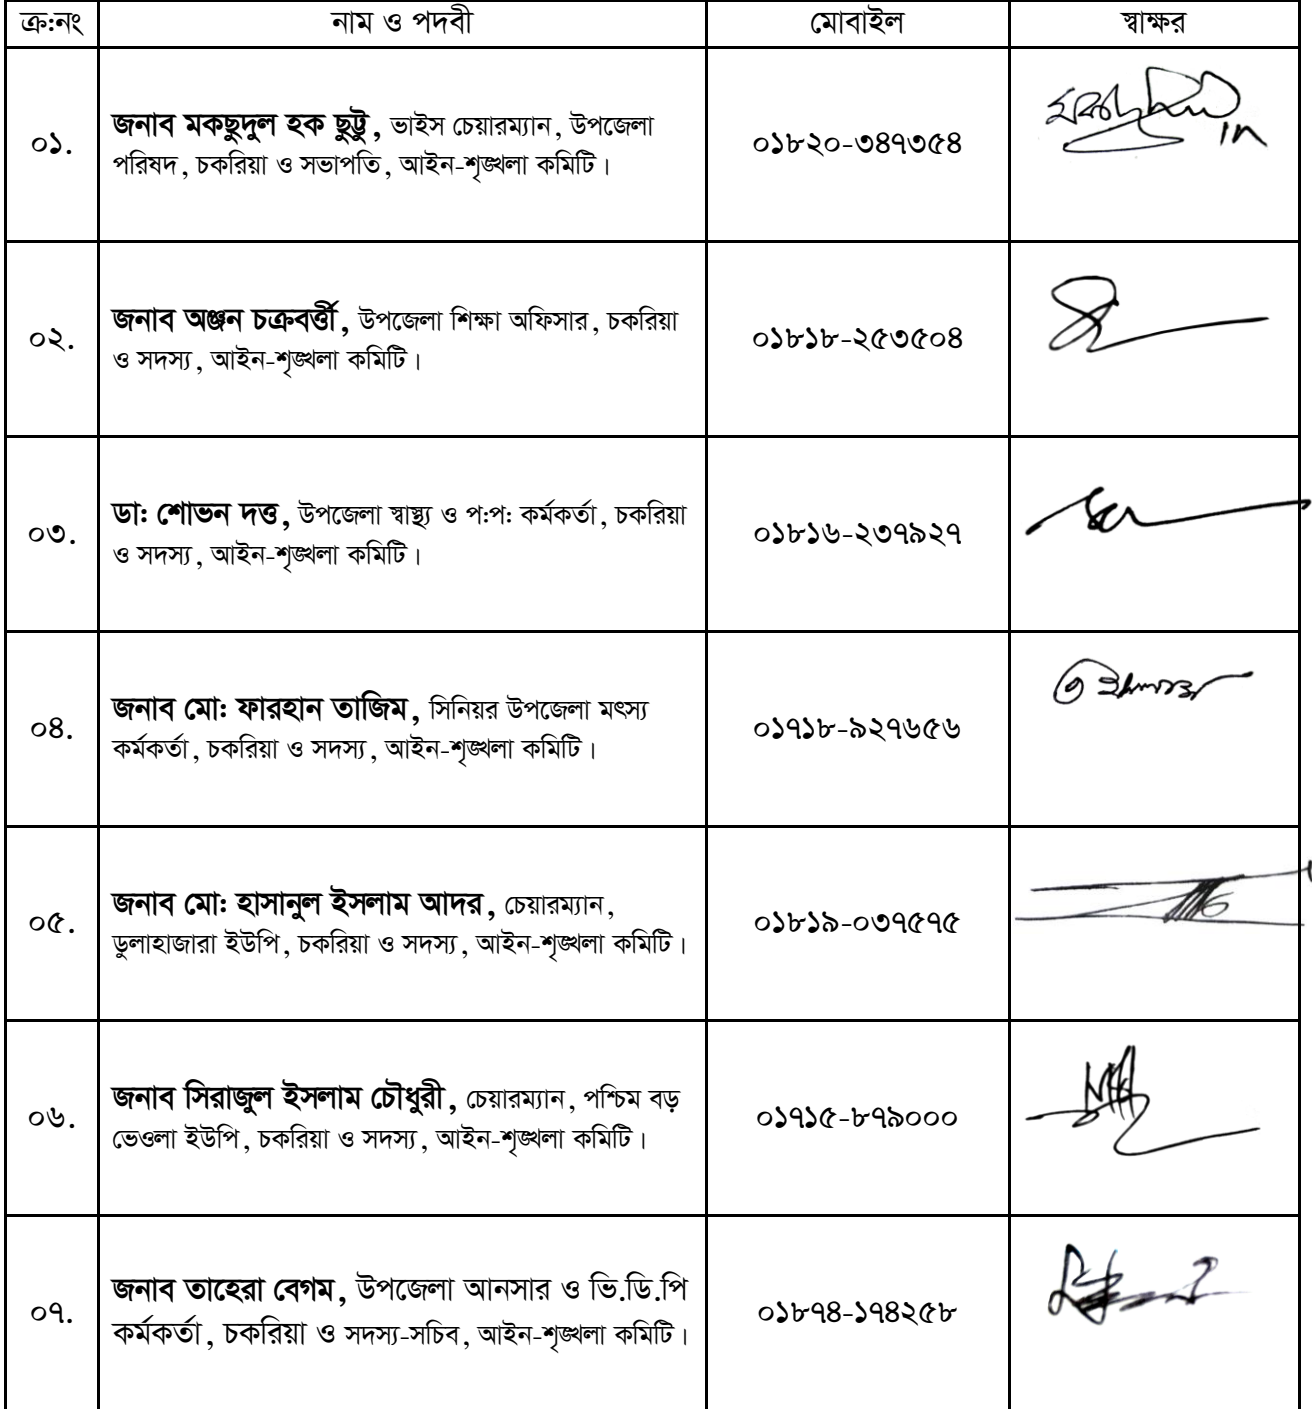 ক্র:নং নাম ও পদবী মোবাইল স্বাক্ষর
০১. জনাব মকছুদুল হক ছুট্টু, ভাইস চেয়ারম্যান, উপজেলা
পরিষদ, চকরিয়া ও সভাপতি, আইন-শৃঙ্খলা কমিটি। ০১৮২০-৩৪৭৩৫৪
০২. জনাব অঞ্জন চক্রবর্ত্তী, উপজেলা শিক্ষা অফিসার, চকরিয়া
ও সদস্য, আইন-শৃঙ্খলা কমিটি। ০১৮১৮-২৫৩৫০৪
০৩. ডা: শোভন দত্ত, উপজেলা স্বাস্থ্য ও প:প: কর্মকর্তা, চকরিয়া
ও সদস্য, আইন-শৃঙ্খলা কমিটি। ০১৮১৬-২৩৭৯২৭
০৪. জনাব মো: ফারহান তাজিম, সিনিয়র উপজেলা মৎস্য
কর্মকর্তা, চকরিয়া ও সদস্য, আইন-শৃঙ্খলা কমিটি। ০১৭১৮-৯২৭৬৫৬
০৫. জনাব মো: হাসানুল ইসলাম আদর, চেয়ারম্যান,
ডুলাহাজারা ইউপি, চকরিয়া ও সদস্য, আইন-শৃঙ্খলা কমিটি। ০১৮১৯-০৩৭৫৭৫
০৬. জনাব সিরাজুল ইসলাম চৌধুরী, চেয়ারম্যান, পশ্চিম বড়
ভেওলা ইউপি, চকরিয়া ও সদস্য, আইন-শৃঙ্খলা কমিটি। ০১৭১৫-৮৭৯০০০
০৭. জনাব তাহেরা বেগম, উপজেলা আনসার ও ভি.ডি.পি
কর্মকর্তা, চকরিয়া ও সদস্য-সচিব, আইন-শৃঙ্খলা কমিটি। ০১৮৭৪-১৭৪২৫৮